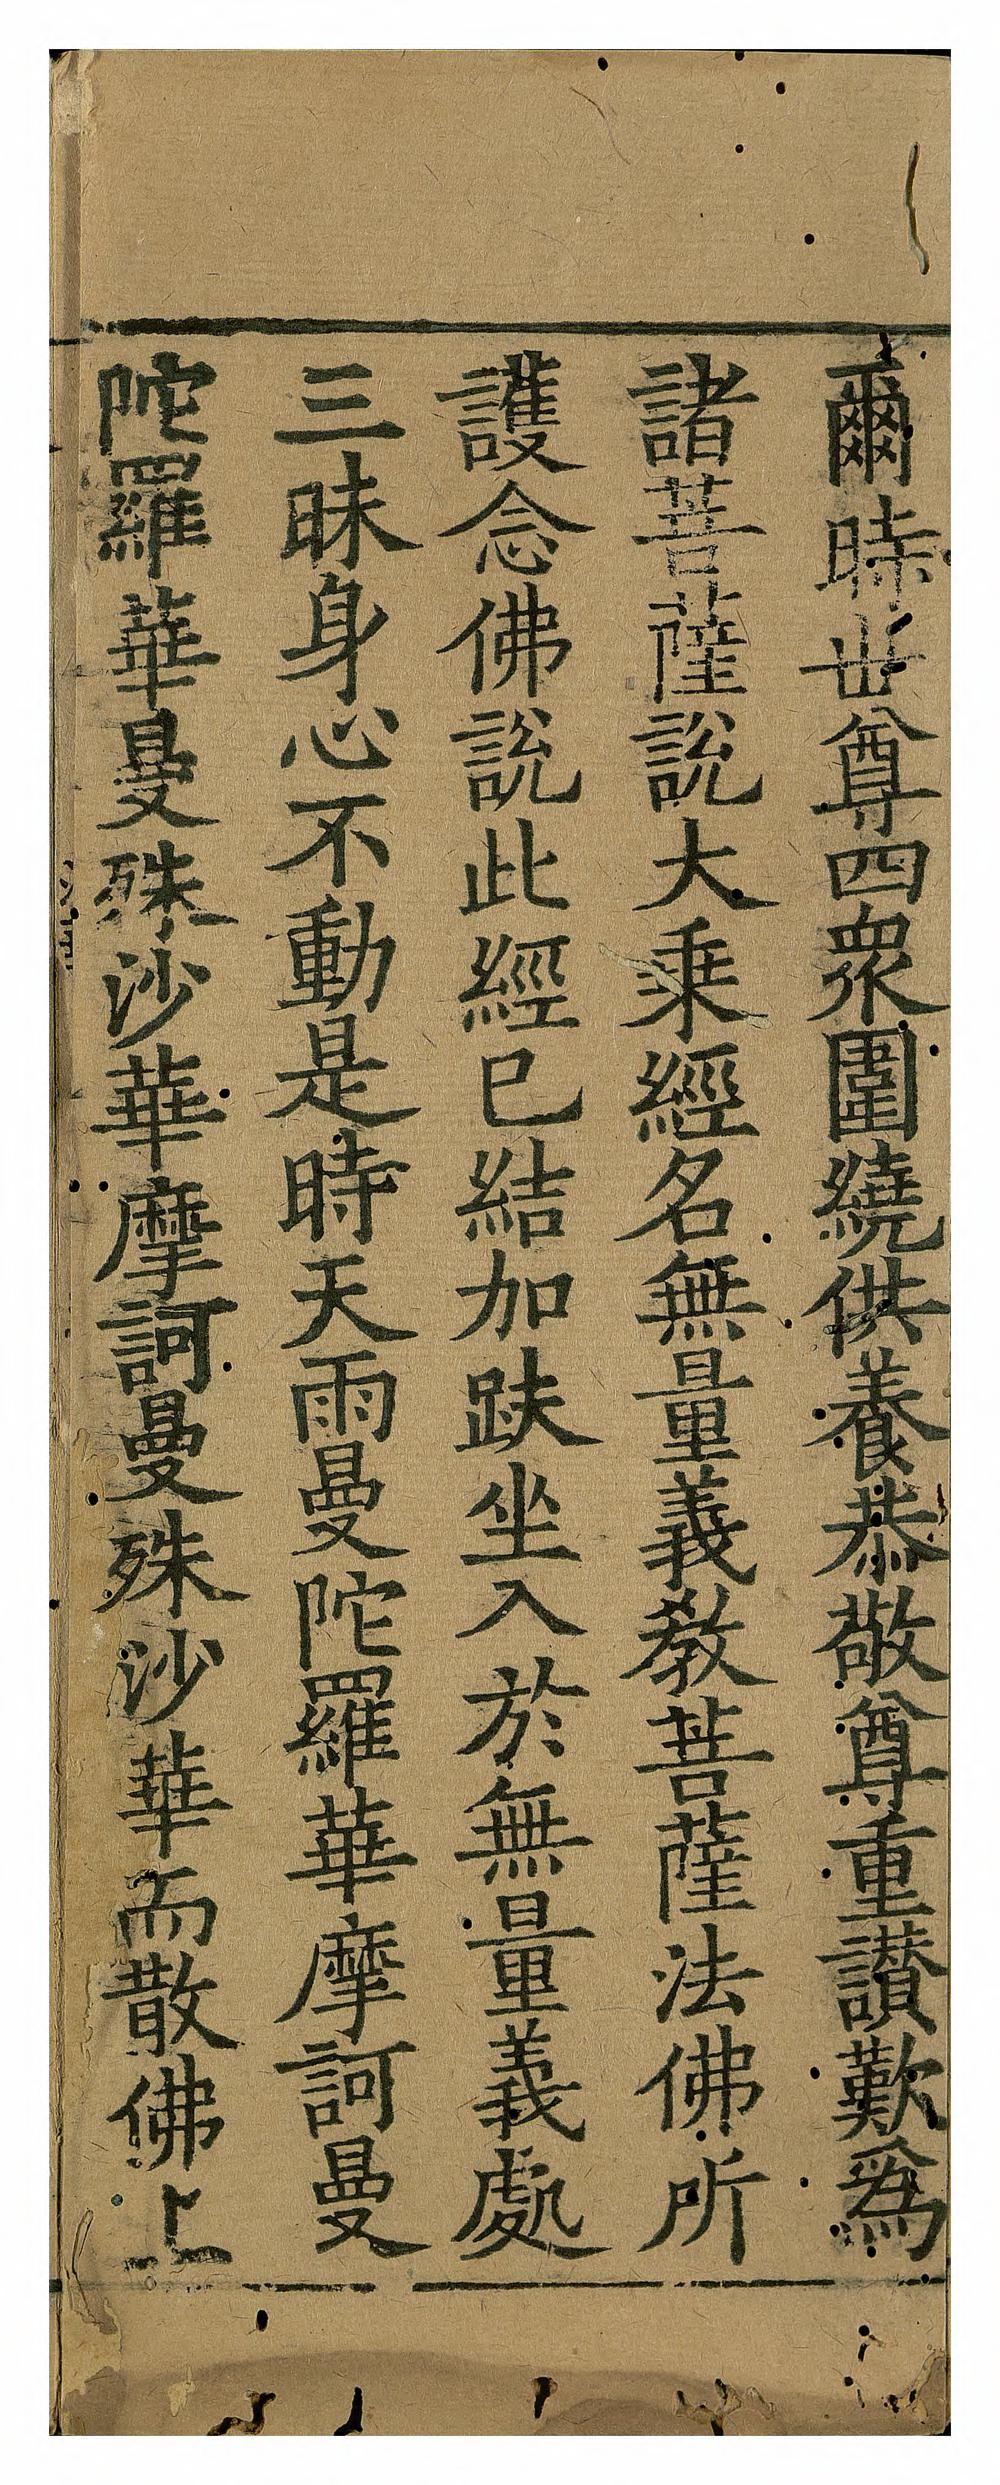 爾時世尊四衆圍繞供養恭敬尊重讃歎爲
諸菩薩說大乗經名無量義教菩薩法佛所
護念佛說此經已結加趺坐入於無量義處
三昧身心不動是時天雨曼陀羅華摩訶曼
陀羅華曼殊沙華摩訶曼殊沙華而散佛上